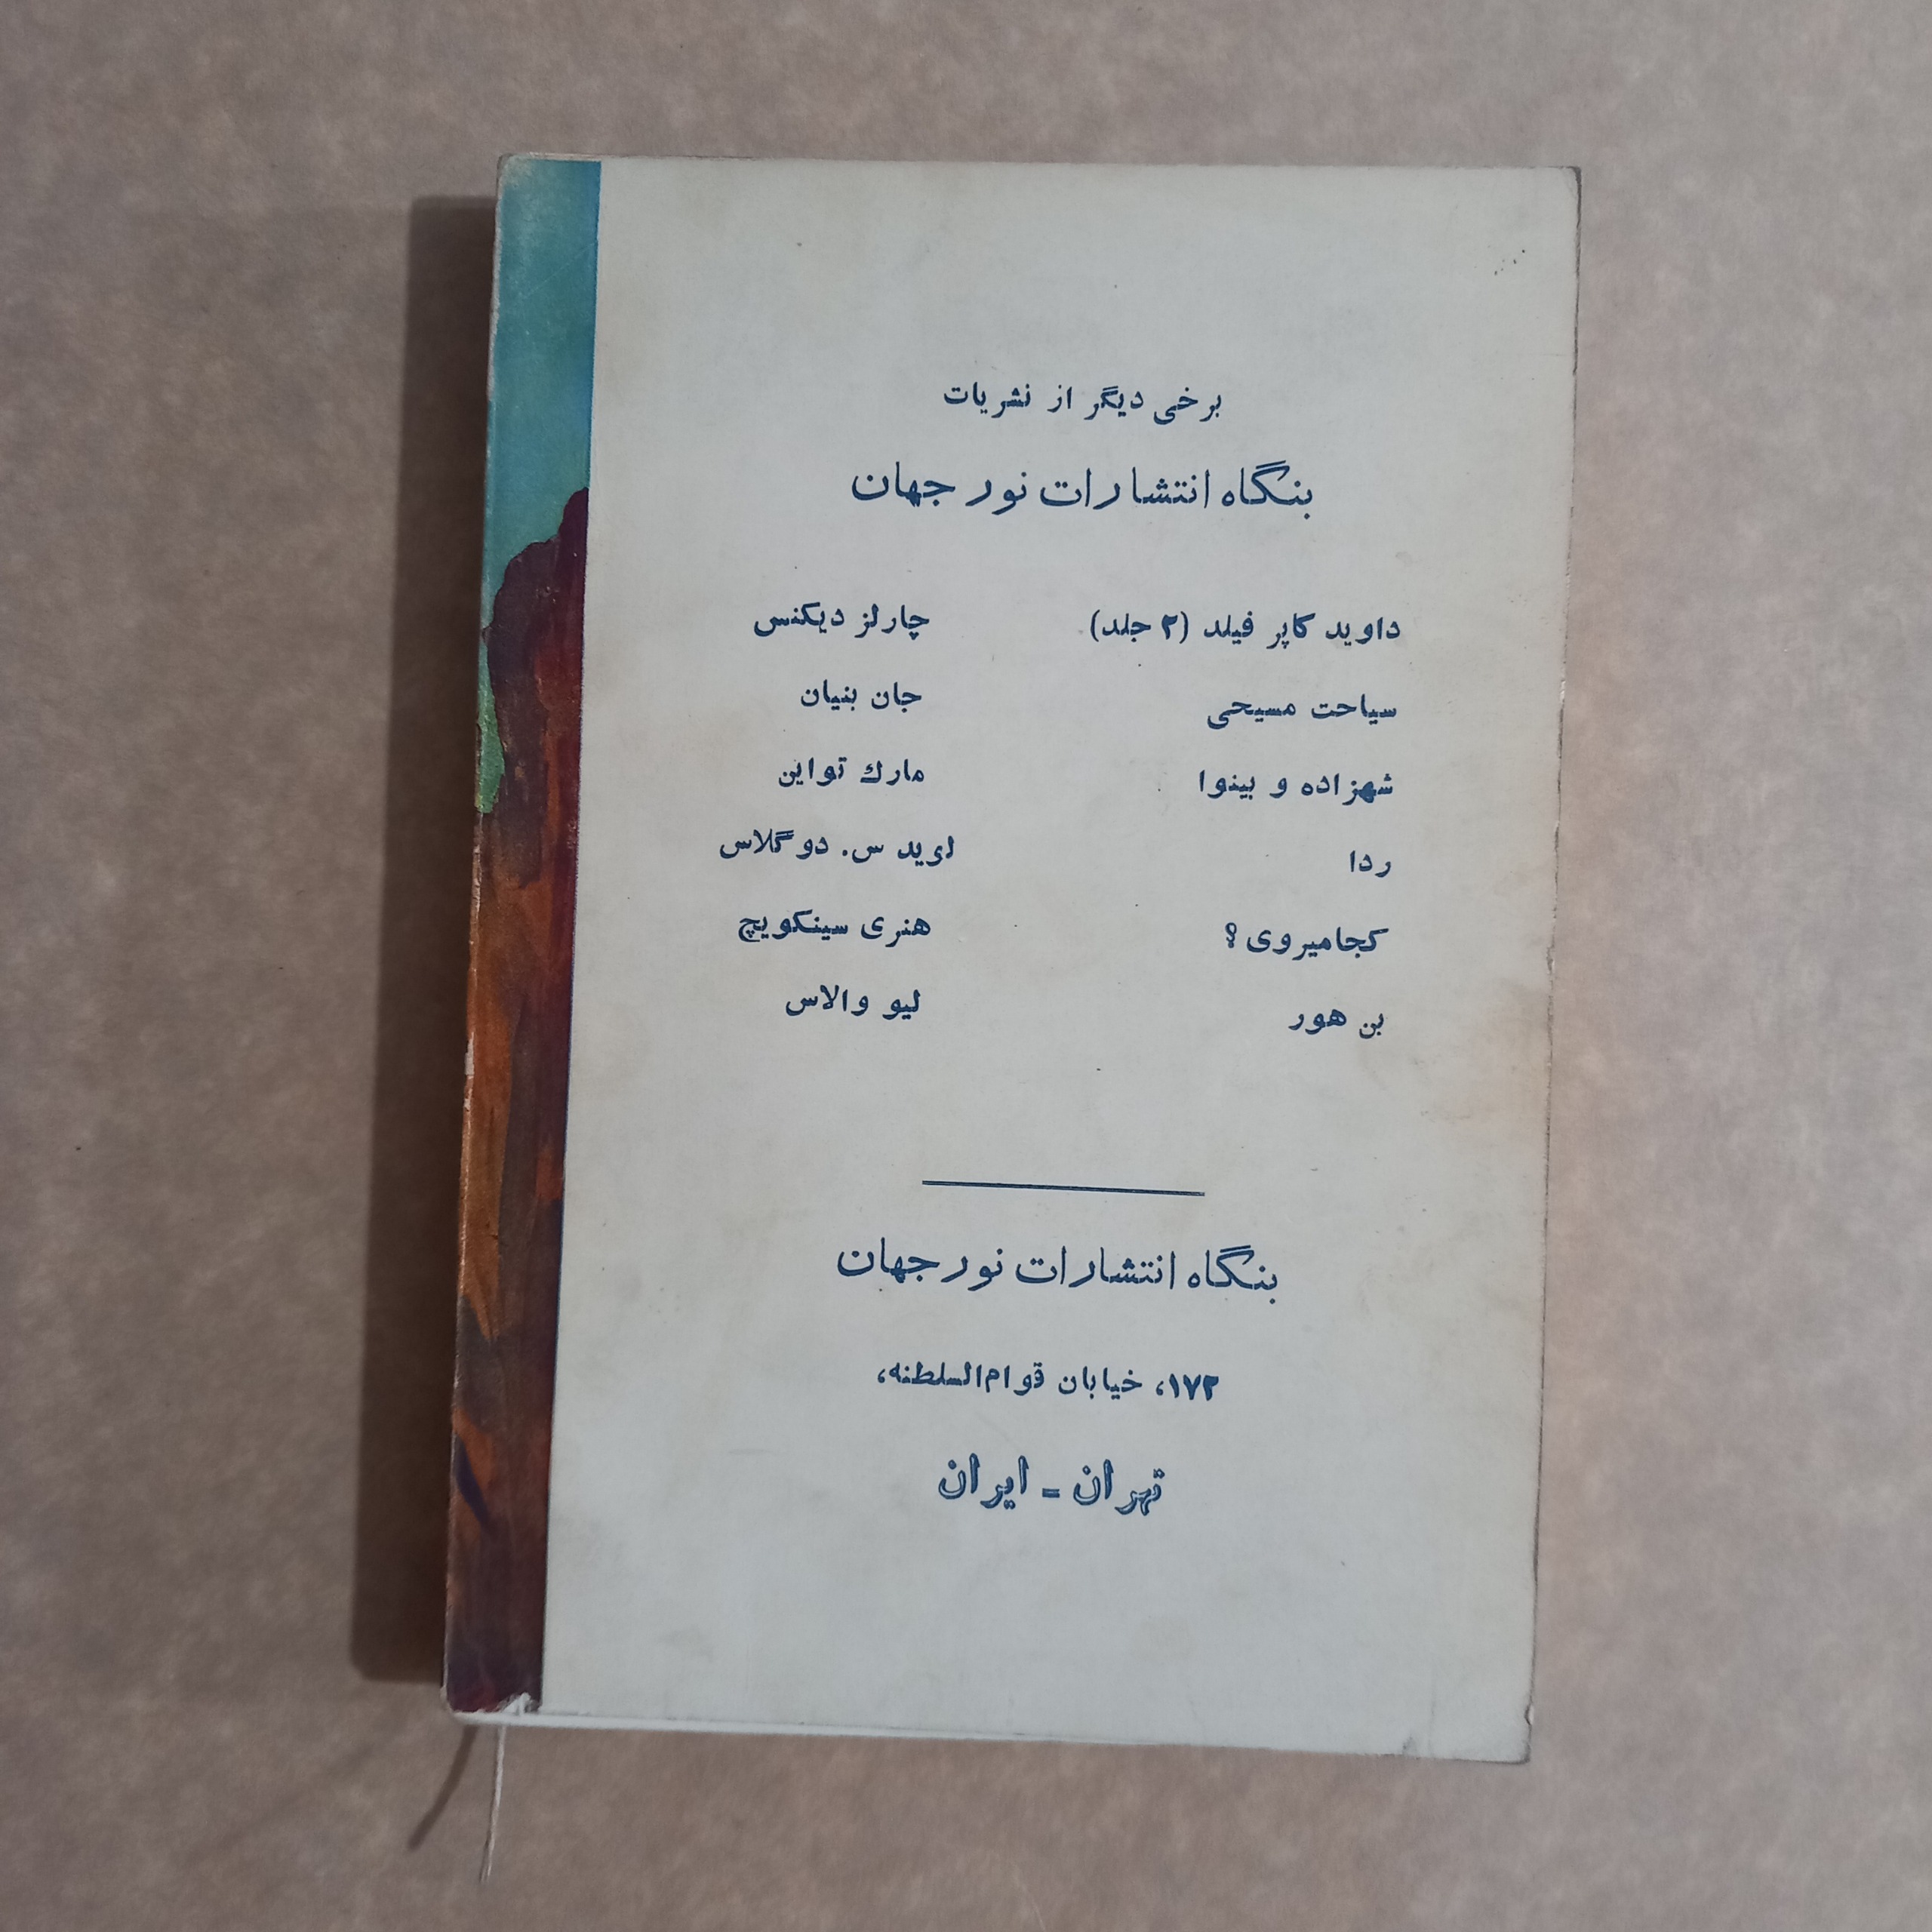 برخی دیگر از نشریات
بنگاه انتشارات نور جهان
داوید کاپر فیلد (۲ جلد) چارلز دیکنس
سیاحت مسیحی جان بنیان
شهزاده و بینوا مارك تواین
ردا لوید س. دوگلاس
کجامیروی؟ هنری سینکویچ
بن هور لیو والاس
بنگاه انتشارات نور جهان
۱۷۲، خیابان قوام‌السلطنه،
تهران - ایران